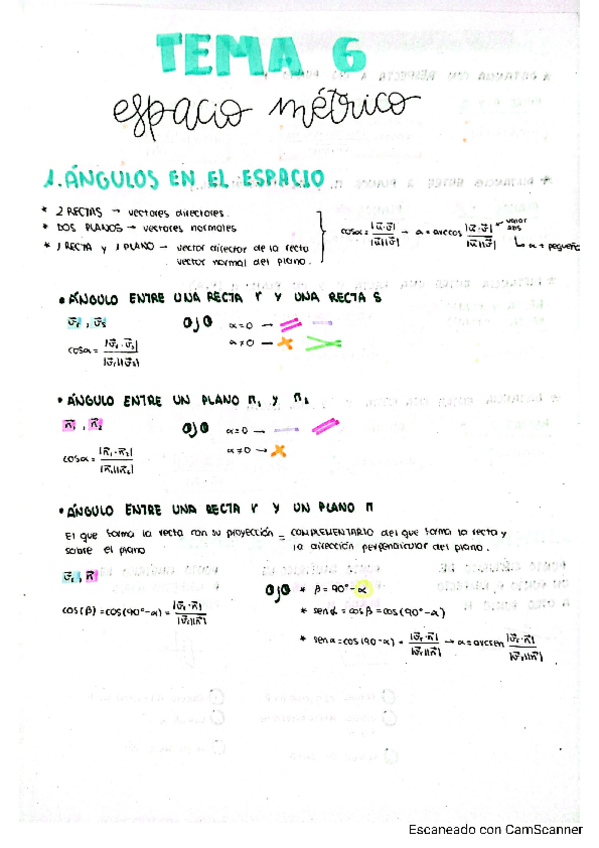 TEMA 6
espacio métrico
1. ÁNGULOS EN EL ESPACIO
* 2 RECTAS → vectores directores.
* DOS PLANOS → vectores normales
* 1 RECTA y 1 PLANO → vector director de la recta
vector normal del plano.
cosα = |u⃗·v⃗| / |u⃗||v⃗| → α = arccos |u⃗·v⃗| / |u⃗||v⃗|
valor abs
α + pequeño
• ÁNGULO ENTRE UNA RECTA r Y UNA RECTA s
OJO α=0 →
α≠0 →
• ÁNGULO ENTRE UN PLANO
OJO α=0 →
α≠0 →
n⃗₁, n⃗₂
cosα = |n⃗₁·n⃗₂| / |n⃗₁||n⃗₂|
• ÁNGULO ENTRE UNA RECTA r Y UN PLANO π
El que forma la recta con su proyección = COMPLEMENTARIO del que forma la recta y
sobre el plano la dirección perpendicular del plano.
v⃗r, n⃗
OJO * β = 90°-α
cos(β) = cos(90°-α) = |v⃗r·n⃗| / |v⃗r||n⃗|
* senα = cosβ = cos(90°-α)
* senα = cos(90-α) = |v⃗r·n⃗| / |v⃗r||n⃗| → α = arcsen |v⃗r·n⃗| / |v⃗r||n⃗|
Escaneado con CamScanner